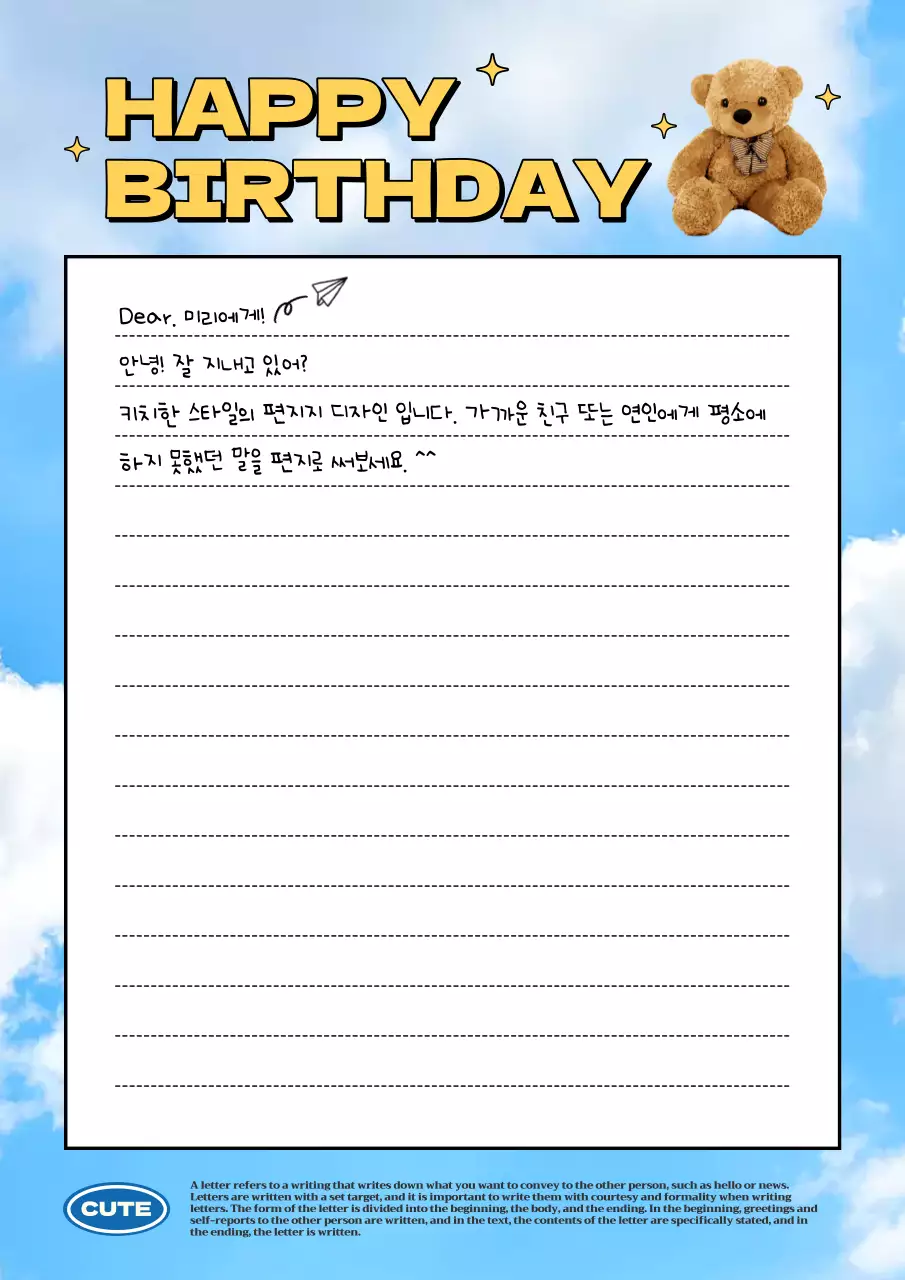 HAPPY
BIRTHDAY
Dear. 미리에게!
안녕! 잘 지내고 있어?
키치한 스타일의 편지지 디자인 입니다. 가까운 친구 또는 연인에게 평소에
하지 못했던 말을 편지로 써보세요. ^^
CUTE
A letter refers to a writing that writes down what you want to convey to the other person, such as hello or news.
Letters are written with a set target, and it is important to write them with courtesy and formality when writing
letters. The form of the letter is divided into the beginning, the body, and the ending. In the beginning, greetings and
self-reports to the other person are written, and in the text, the contents of the letter are specifically stated, and in
the ending, the letter is written.